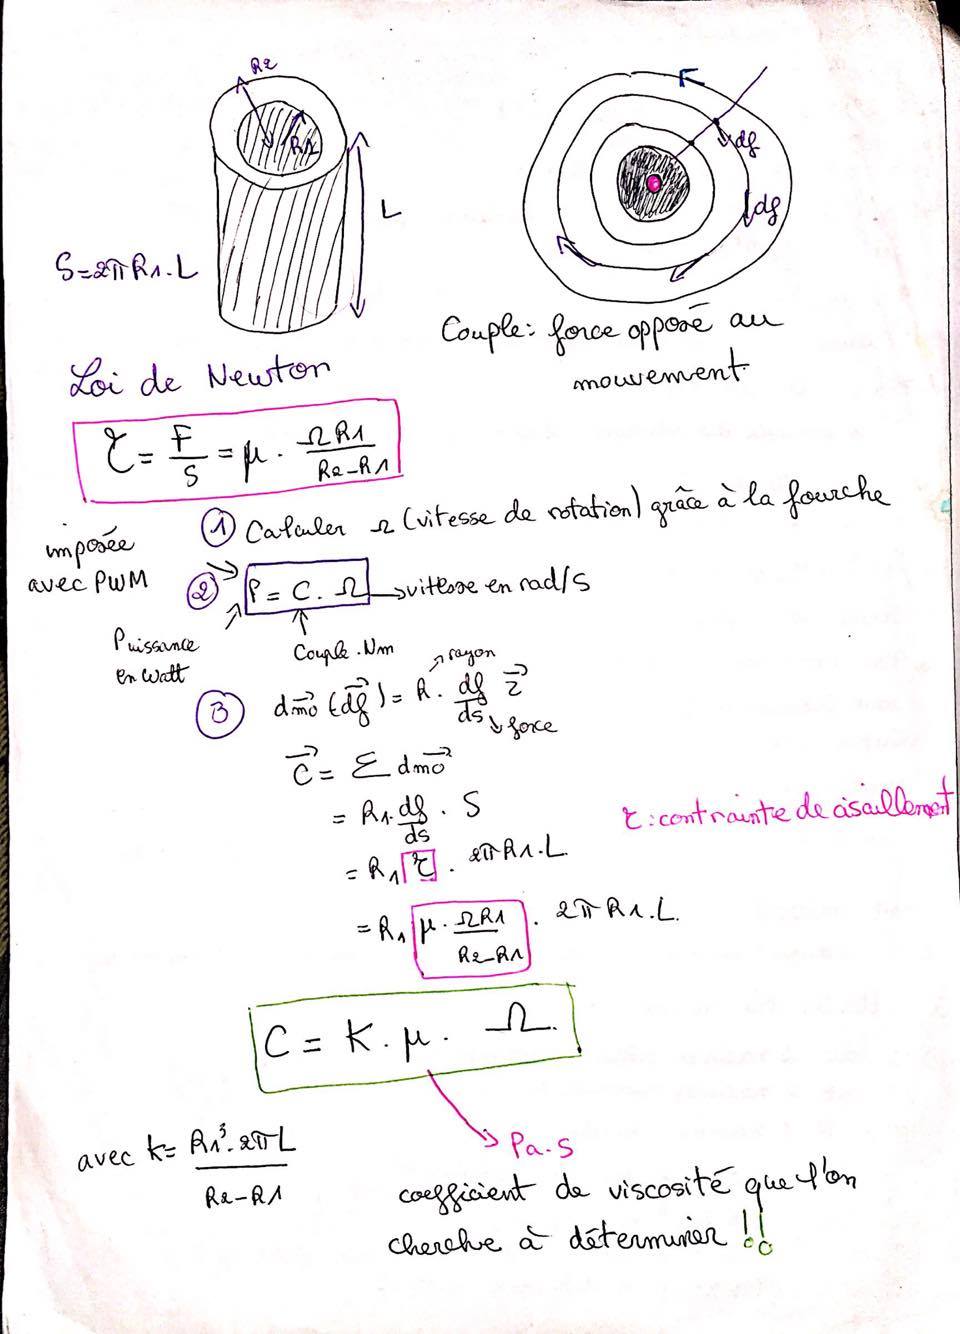 R2
R1
L
S=2πR1.L
df
df
Couple: force opposé au
mouvement
Loi de Newton
τ = F/S = μ . ΩR1/(R2-R1)
① Calculer Ω (vitesse de rotation) grâce à la fourche
imposée
avec PWM
② P = C . Ω → vitesse en rad/s
Puissance
en Watt
Couple .Nm
rayon
③ dm⃗o (df⃗) = R . df/ds z⃗
force
C⃗ = Σ dm⃗o
= R1 . df/ds . S
τ : contrainte de cisaillement
= R1 τ . 2πR1.L
= R1 μ . ΩR1/(R2-R1) . 2πR1.L.
C = K . μ . Ω.
avec k = R1³.2πL/(R2-R1)
Pa.s
coefficient de viscosité que l'on
cherche à déterminer !!